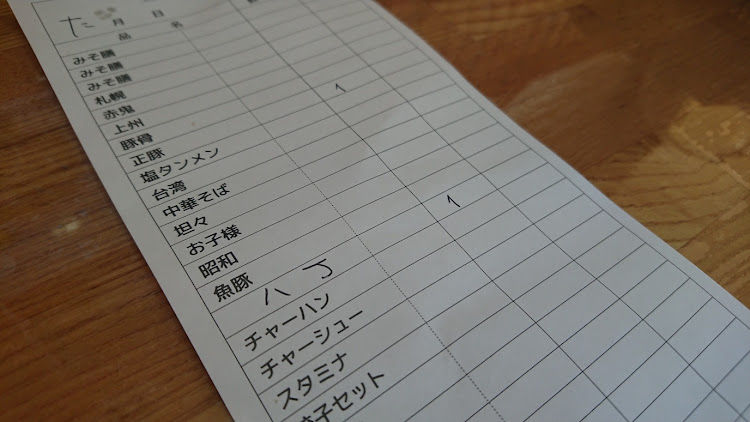 た 月 日
品 名
みそ膳
みそ膳
みそ膳
札幌
赤鬼
上州
豚骨
正豚 1
塩タンメン
台湾
中華そば
坦々
お子様
昭和
魚豚 1
ハ丁
チャーハン
チャーシュー
スタミナ
子セット